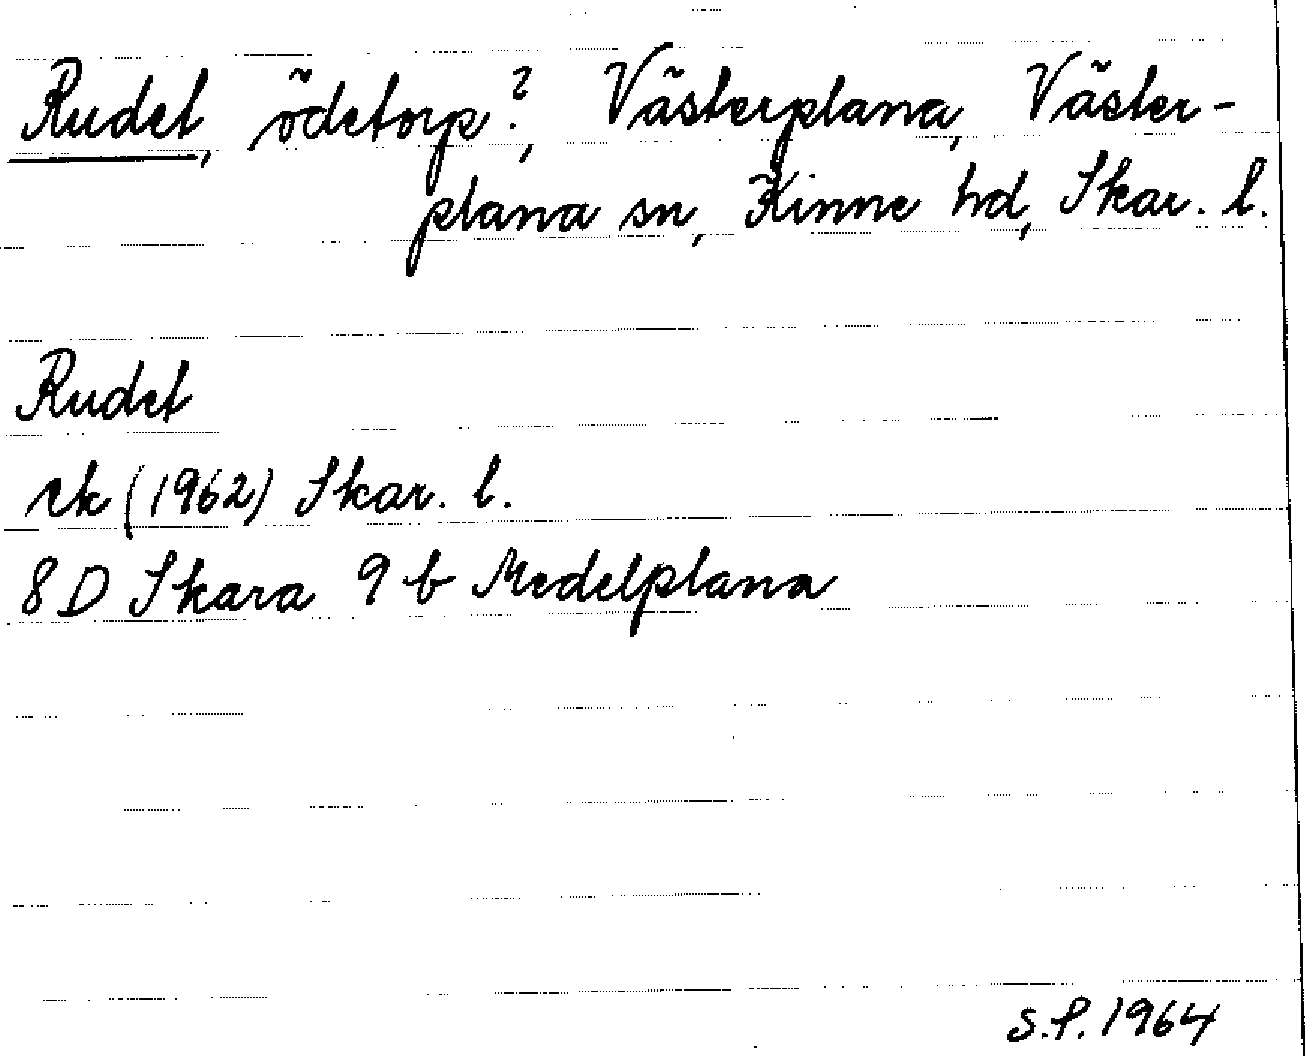 Rudet, ödetorp?, Västerplana, Väster-
plana sn, Kinne hd, Skar. l.
Rudet
rk (1962) Skar. l.
8D Skara 9 b Medelplana
S.P. 1964